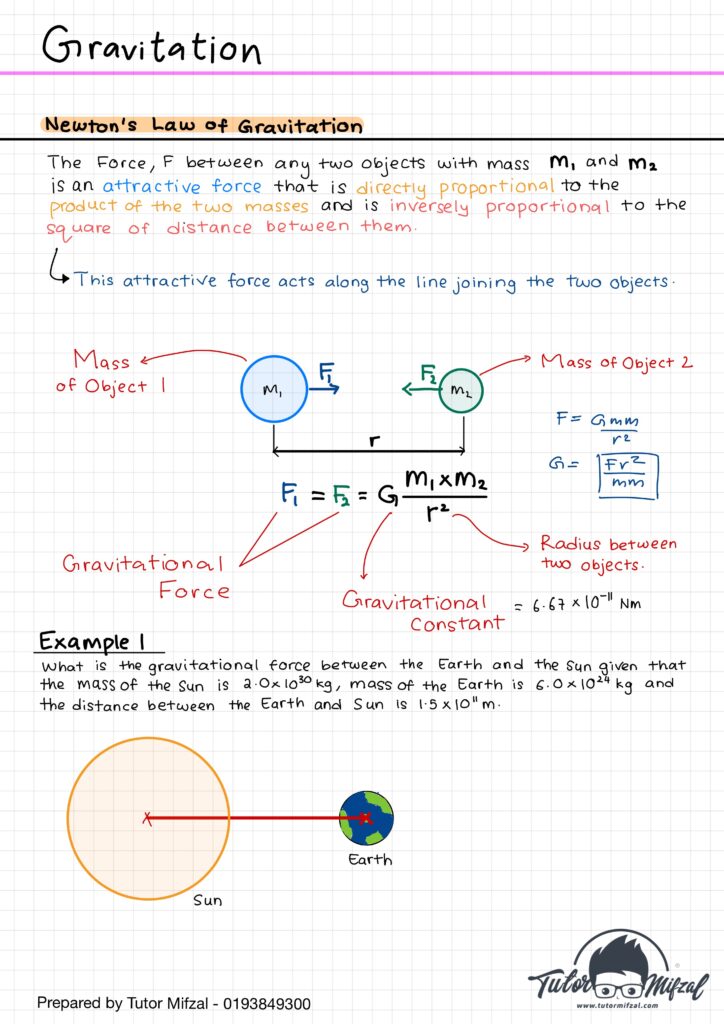 Gravitation
Newton's Law of Gravitation
The Force, F between any two objects with mass m₁ and m₂
is an attractive force that is directly proportional to the
product of the two masses and is inversely proportional to the
square of distance between them.
This attractive force acts along the line joining the two objects.
Mass
of Object 1
m₁
F₁
F₂
m₂
Mass of Object 2
r
F = Gmm
r²
G = Fr²
mm
F₁ = F₂ = G m₁ x m₂
r²
Gravitational
Force
Radius between
two objects.
Gravitational
constant
= 6.67 x 10⁻¹¹ Nm
Example 1
What is the gravitational force between the Earth and the Sun given that
the mass of the Sun is 2.0x10³⁰ kg, mass of the Earth is 6.0x10²⁴ kg and
the distance between the Earth and Sun is 1.5x10¹¹ m.
Earth
Sun
Tutor Mifzal
®
www.tutormifzal.com
Prepared by Tutor Mifzal - 0193849300